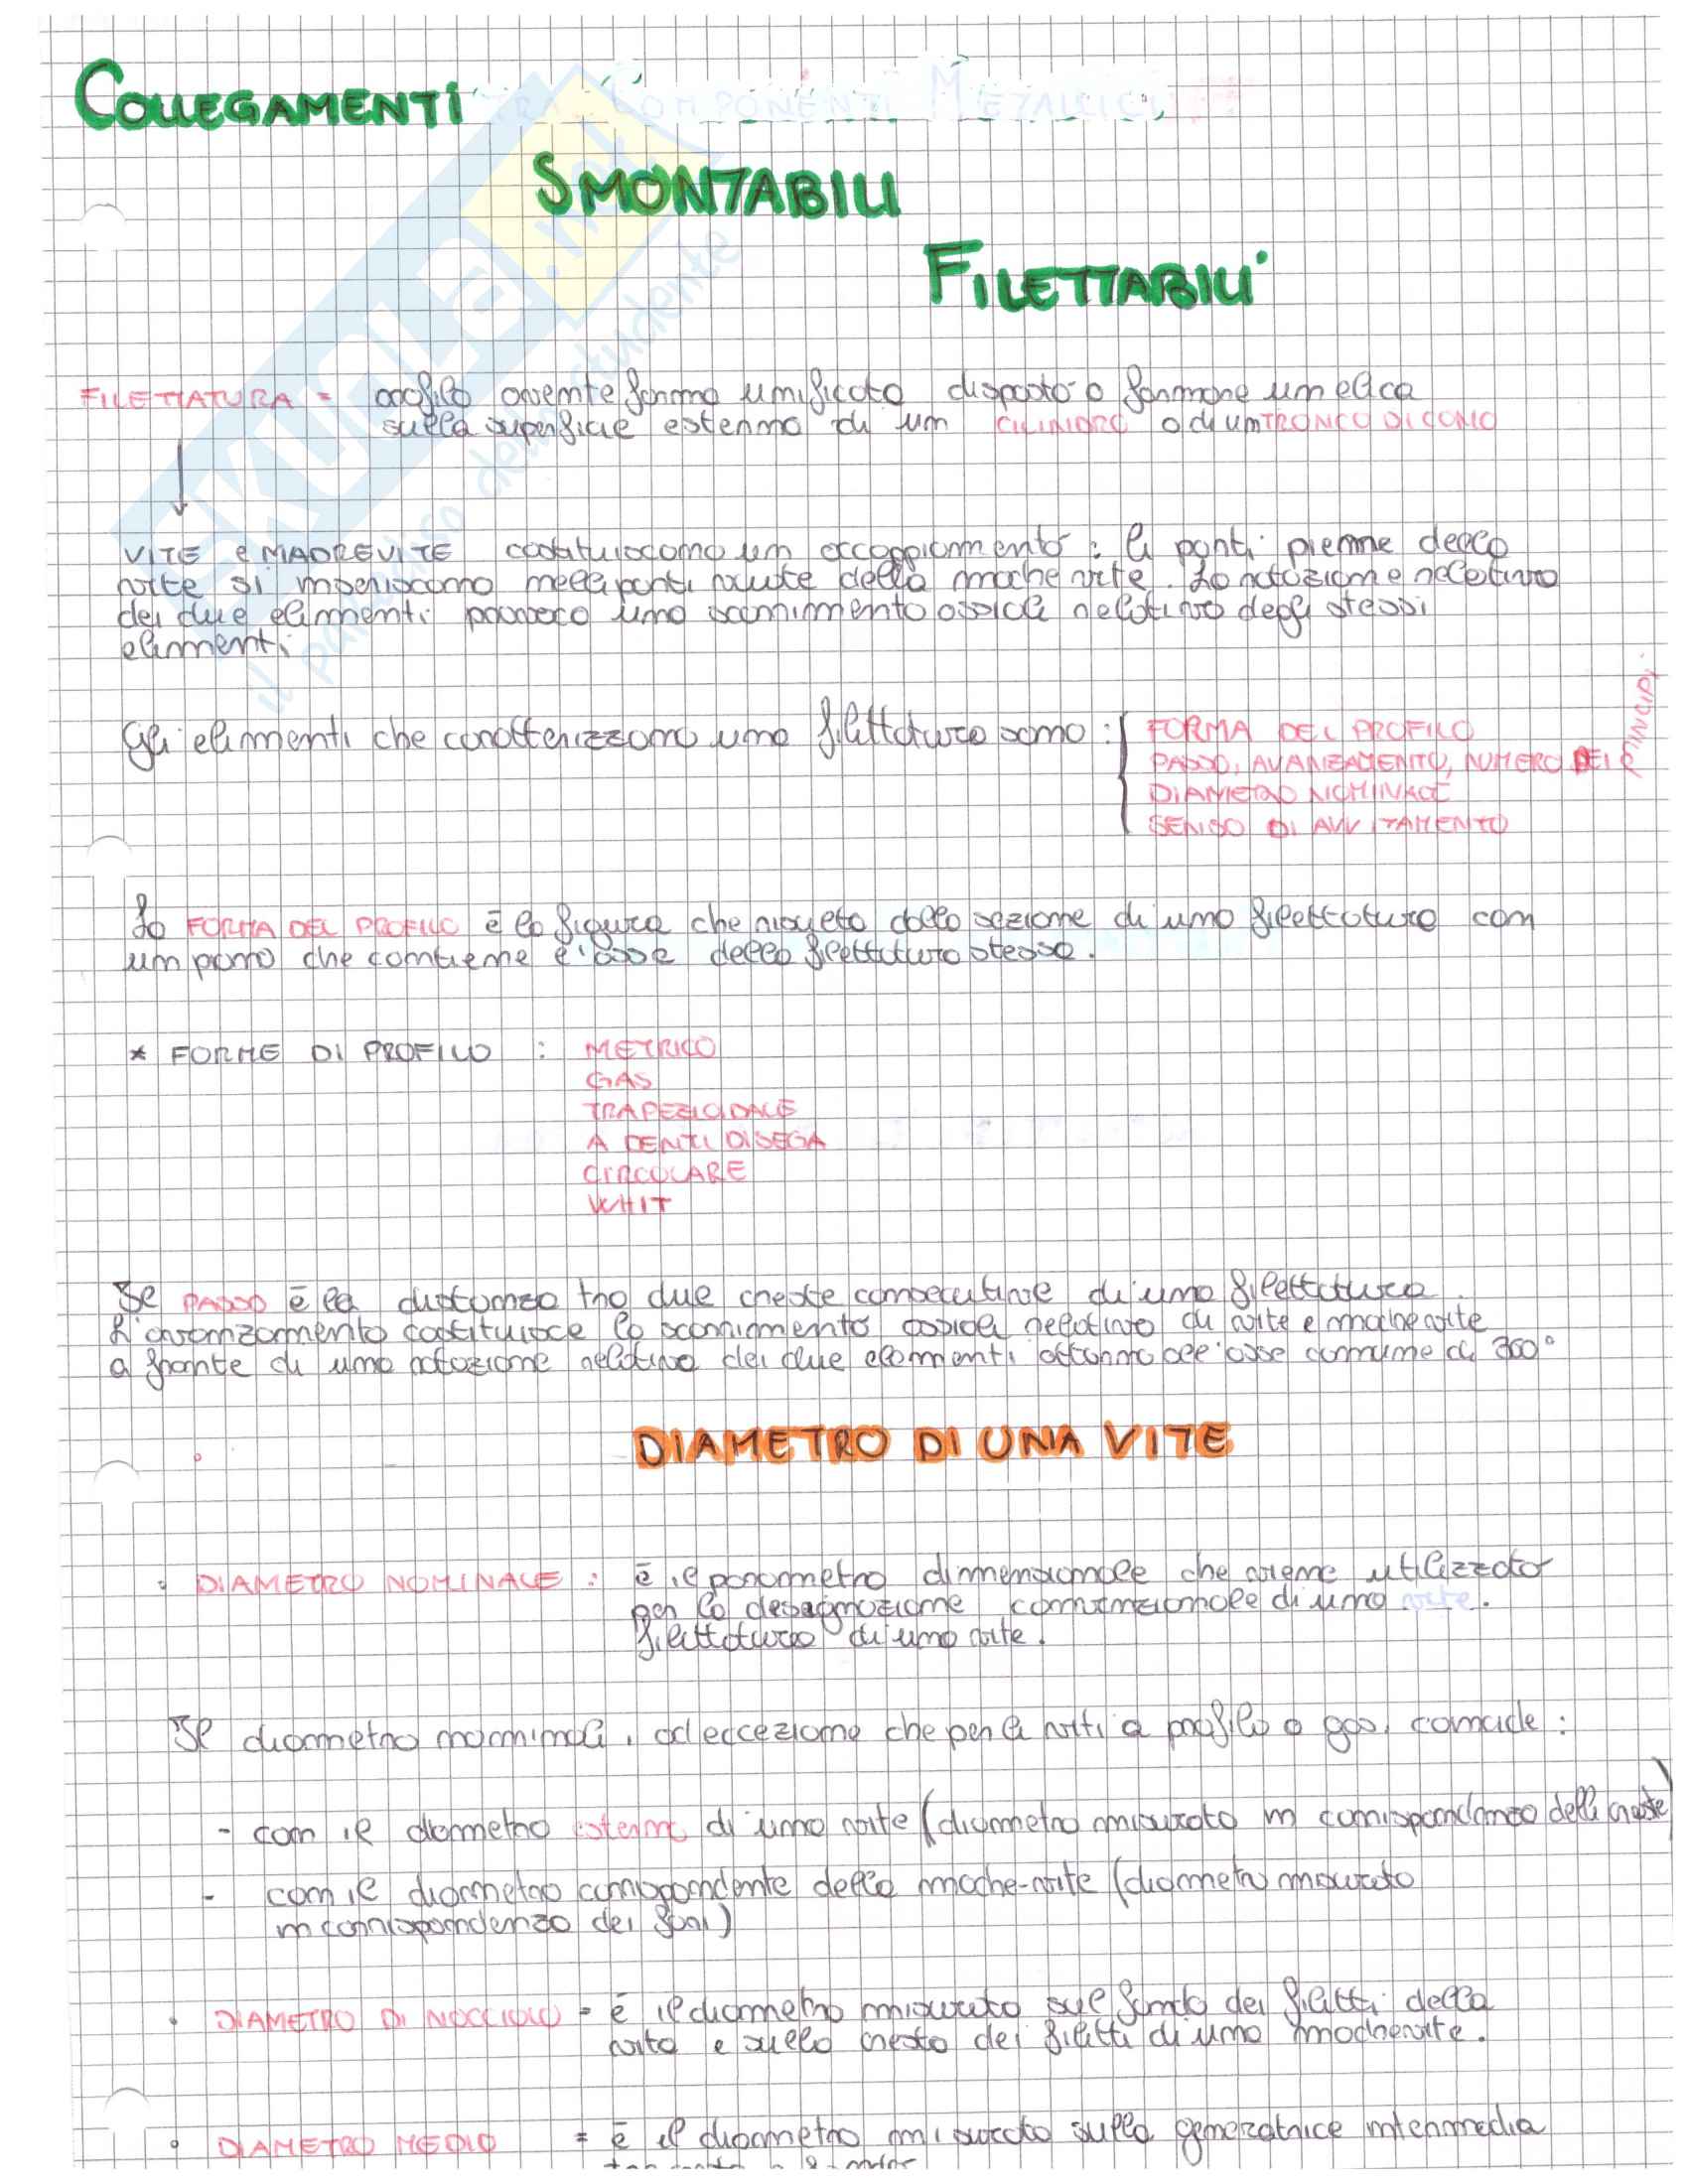 COLLEGAMENTI TRA COMPONENTI METALLICI
SMONTABILI
FILETTABILI
SKUOLA.net
il paradiso dello studente
FILETTATURA = profilo avente forma unificata disposto a formare un elica
sulla superficie esterna di un CILINDRO o di un TRONCO DI CONO
VITE e MADREVITE costituiscono un accoppiamento: le parti piene della
vite si inseriscono nelle parti vuote della madrevite. La rotazione relativa
dei due elementi provoca uno scorrimento assiale relativo degli stessi
elementi.
Gli elementi che caratterizzano una filettatura sono:
FORMA DEL PROFILO
PASSO, AVANZAMENTO, NUMERO DEI PRINCIPI.
DIAMETRO NOMINALE
SENSO DI AVVITAMENTO
La FORMA DEL PROFILO è la figura che risulta dalla sezione di una filettatura con
un piano che contiene l'asse della filettatura stessa.
* FORME DI PROFILO : METRICO
GAS
TRAPEZIOIDALE
A DENTI DI SEGA
CIRCOLARE
WHIT
Il PASSO è la distanza tra due creste consecutive di una filettatura.
L'avanzamento costituisce lo scorrimento assiale relativo di vite e madrevite
a fronte di una rotazione relativa dei due elementi attorno all'asse comune di 360°
DIAMETRO DI UNA VITE
• DIAMETRO NOMINALE : è il parametro dimensionale che viene utilizzato
per la designazione convenzionale di una vite.
filettatura di una vite.
Il diametro nominale, ad eccezione che per le viti a profilo a gas, coincide :
- con il diametro esterno di una vite (diametro misurato in corrispondenza delle creste)
- con il diametro corrispondente della madre-vite (diametro misurato
in corrispondenza dei fori)
• DIAMETRO DI NOCCIOLO = è il diametro misurato sul fondo dei filetti della
vite e sulla cresta dei filetti di una madrevite.
• DIAMETRO MEDIO = è il diametro misurato sulla generatrice intermedia